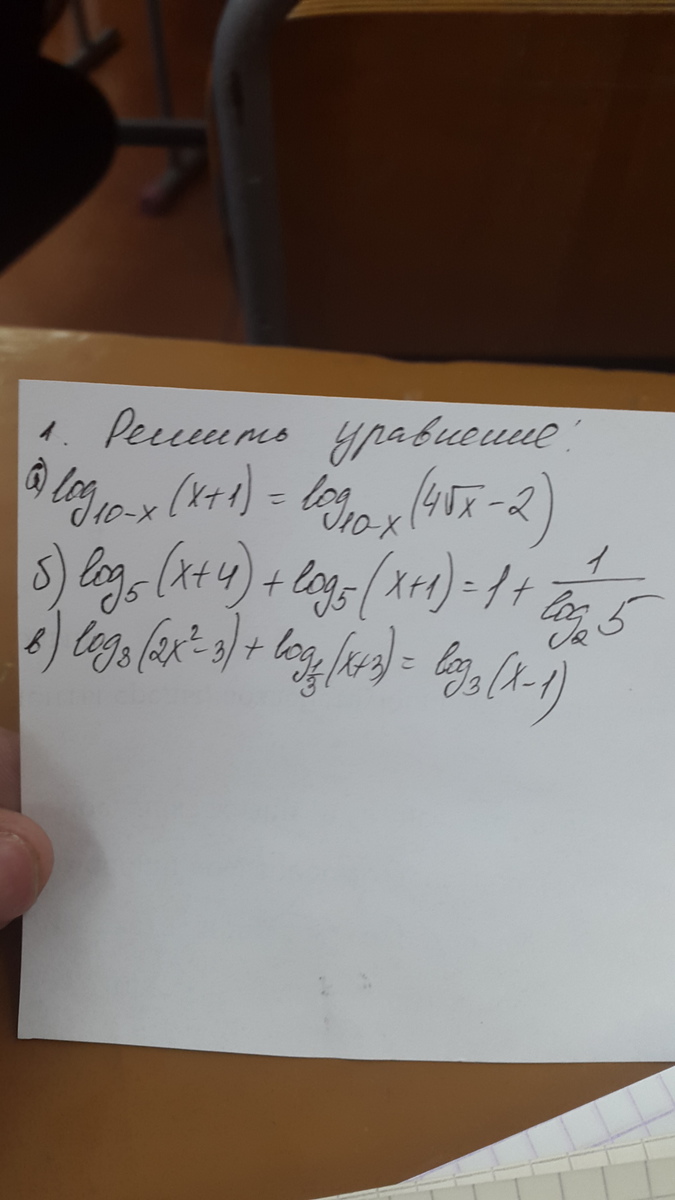 1. Решить уравнение:
а) log₁₀₋ₓ(x+1) = log₁₀₋ₓ(4√x - 2)
б) log₅(x+4) + log₅(x+1) = 1 + 1/log₂5
в) log₃(2x²-3) + log_{1/3}(x+3) = log₃(x-1)